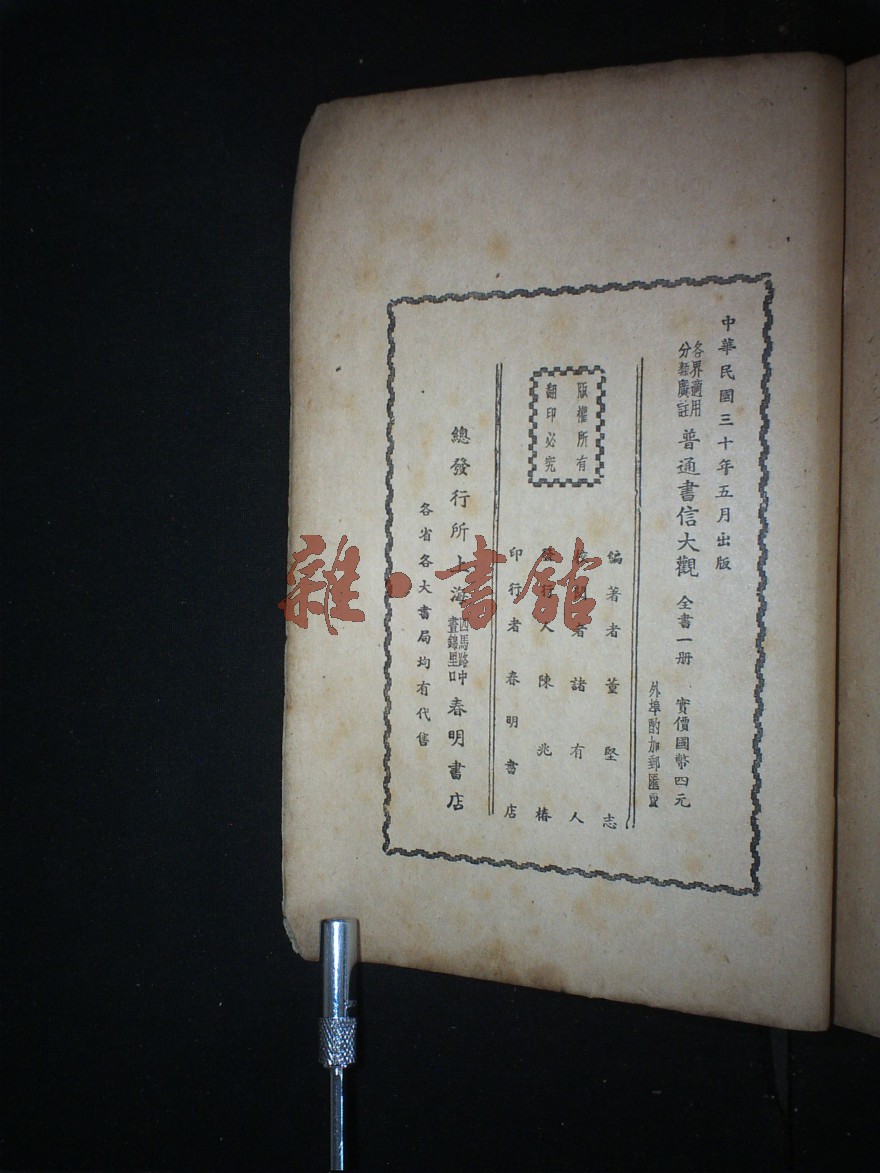 中華民國三十年五月出版
各界適用
分類廣註
普通書信大觀 全書一册 實價國幣四元
外埠酌加郵匯費
編著者董堅志
校閱者諸有人
發行人陳兆椿
印行者春明書店
版權所有
翻印必究
總發行所上海
四馬路
晝錦里
口中春明書店
各省各大書局均有代售
雜·書館